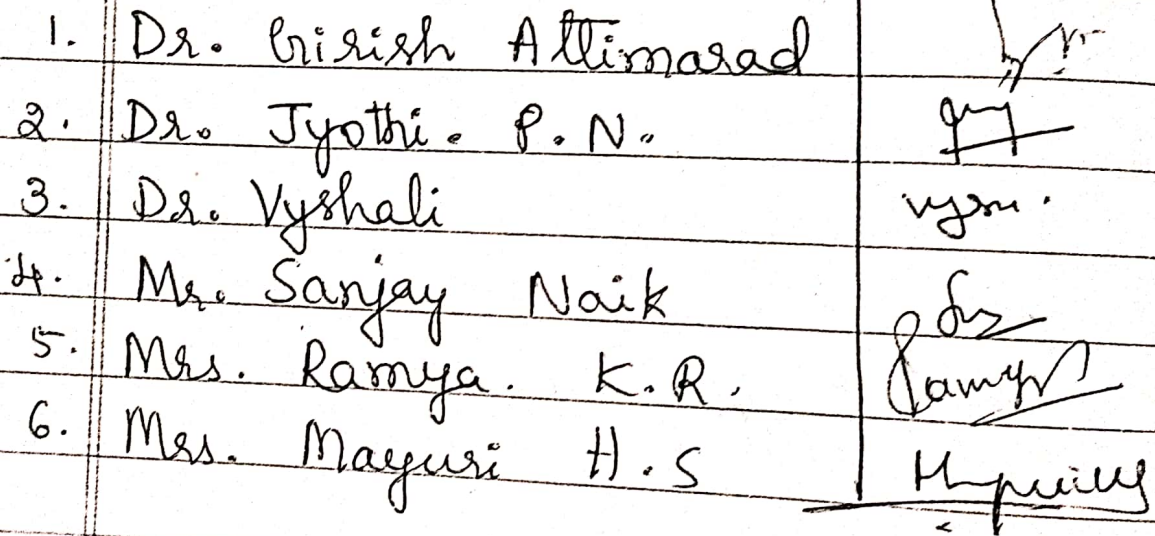 1. Dr. Girish Attimarad
2. Dr. Jyothi. P. N.
3. Dr. Vyshali
4. Mr. Sanjay Naik
5. Mrs. Ramya. K. R.
6. Mrs. Mayuri H. S